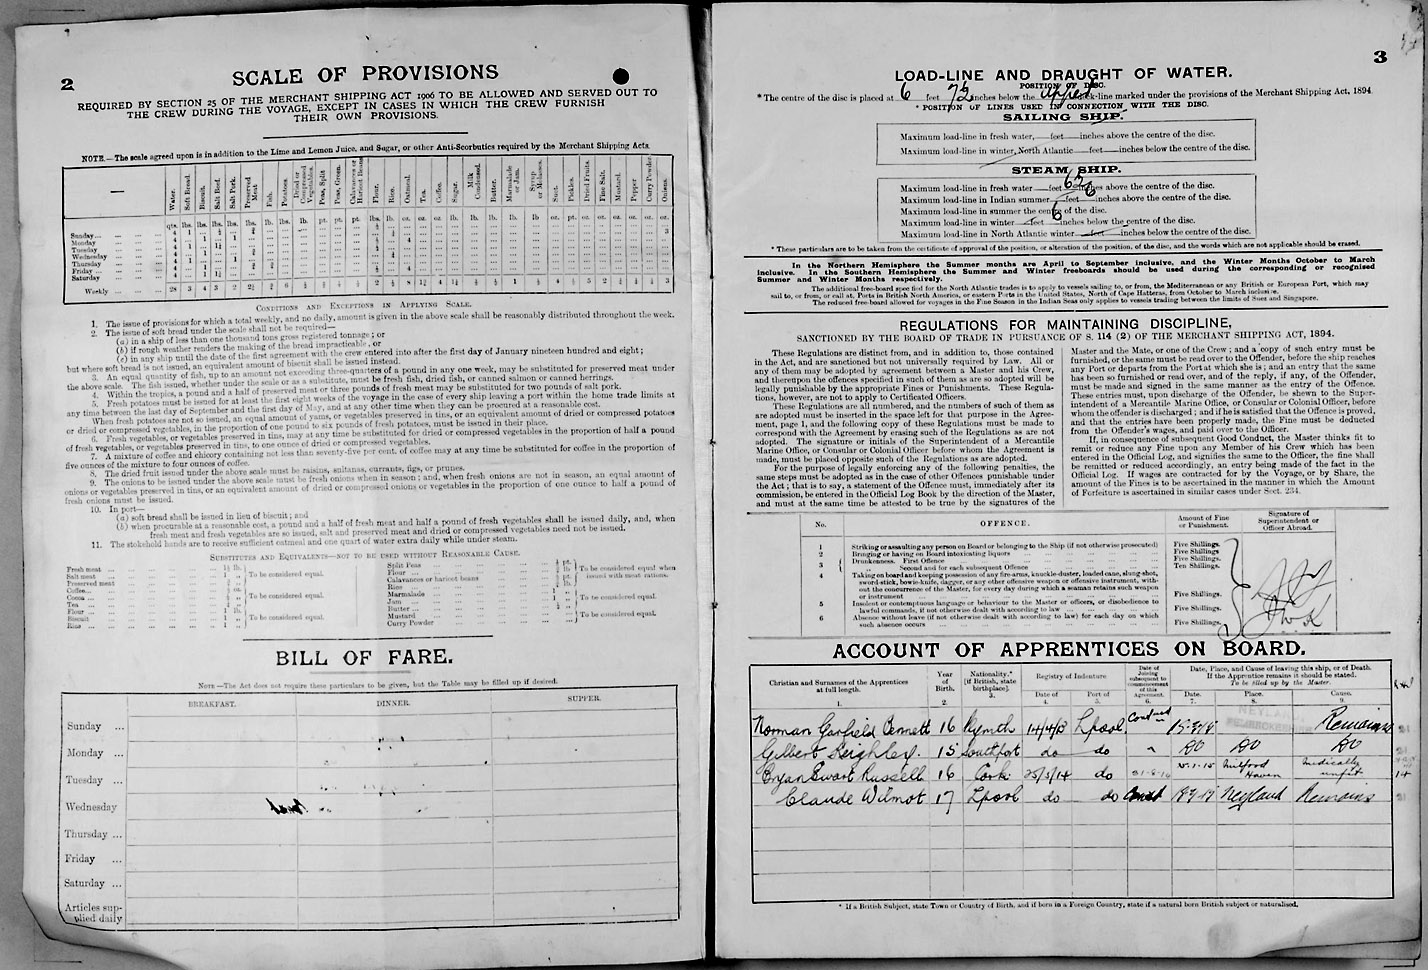 2
SCALE OF PROVISIONS
REQUIRED BY SECTION 25 OF THE MERCHANT SHIPPING ACT 1906 TO BE ALLOWED AND SERVED OUT TO
THE CREW DURING THE VOYAGE, EXCEPT IN CASES IN WHICH THE CREW FURNISH
THEIR OWN PROVISIONS.
NOTE.—The scale agreed upon is in addition to the Lime and Lemon Juice, and Sugar, or other Anti-Scorbutics required by the Merchant Shipping Acts.
Water. Soft Bread. Biscuit. Salt Beef. Salt Pork. Preserved Meat Fish. Potatoes. Dried or Compressed Vegetables. Peas, Split Peas, Green. Calavances or Haricot Beans Flour. Rice. Oatmeal. Tea. Coffee. Sugar. Milk Condensed. Butter. Marmalade or Jam. Syrup or Molasses. Suet. Pickles. Dried Fruits. Fine Salt. Mustard. Pepper Curry Powder. Onions.
qts. lbs. lbs. lbs. lbs. lbs. lbs. lbs. lb. pt. pt. pt. lbs. lb. oz. oz. oz. lb. lb. lb. lb. lb oz. pt. oz. oz. oz. oz. oz. oz.
Sunday
Monday
Tuesday
Wednesday
Thursday
Friday
Saturday
Weekly
CONDITIONS AND EXCEPTIONS IN APPLYING SCALE.
1. The issue of provisions for which a total weekly, and no daily, amount is given in the above scale shall be reasonably distributed throughout the week.
2. The issue of soft bread under the scale shall not be required—
(a) in a ship of less than one thousand tons gross registered tonnage; or
(b) if rough weather renders the making of the bread impracticable, or
(c) in any ship until the date of the first agreement with the crew entered into after the first day of January nineteen hundred and eight;
but where soft bread is not issued, an equivalent amount of biscuit shall be issued instead.
3. An equal quantity of fish, up to an amount not exceeding three-quarters of a pound in any one week, may be substituted for preserved meat under
the above scale. The fish issued, whether under the scale or as a substitute, must be fresh fish, dried fish, or canned salmon or canned herrings.
4. Within the tropics, a pound and a half of preserved meat or three pounds of fresh meat may be substituted for two pounds of salt pork.
5. Fresh potatoes must be issued for at least the first eight weeks of the voyage in the case of every ship leaving a port within the home trade limits at
any time between the last day of September and the first day of May, and at any other time when they can be procured at a reasonable cost.
When fresh potatoes are not so issued, an equal amount of yams, or vegetables preserved in tins, or an equivalent amount of dried or compressed potatoes
or dried or compressed vegetables, in the proportion of one pound to six pounds of fresh potatoes, must be issued in their place.
6. Fresh vegetables, or vegetables preserved in tins, may at any time be substituted for dried or compressed vegetables in the proportion of half a pound
of fresh vegetables, or vegetables preserved in tins, to one ounce of dried or compressed vegetables.
7. A mixture of coffee and chicory containing not less than seventy-five per cent. of coffee may at any time be substituted for coffee in the proportion of
five ounces of the mixture to four ounces of coffee.
8. The dried fruit issued under the above scale must be raisins, sultanas, currants, figs, or prunes.
9. The onions to be issued under the above scale must be fresh onions when in season; and, when fresh onions are not in season, an equal amount of
onions or vegetables preserved in tins, or an equivalent amount of dried or compressed onions or vegetables in the proportion of one ounce to half a pound of
fresh onions must be issued.
10. In port—
(a) soft bread shall be issued in lieu of biscuit; and
(b) when procurable at a reasonable cost, a pound and a half of fresh meat and half a pound of fresh vegetables shall be issued daily, and, when
fresh meat and fresh vegetables are so issued, salt and preserved meat and dried or compressed vegetables need not be issued.
11. The stokehold hands are to receive sufficient oatmeal and one quart of water extra daily while under steam.
SUBSTITUTES AND EQUIVALENTS—NOT TO BE USED WITHOUT REASONABLE CAUSE.
Fresh meat
Salt meat To be considered equal.
Preserved meat
Coffee
Cocoa To be considered equal.
Tea
Flour
Biscuit To be considered equal.
Rice
Split Peas
Flour To be considered equal when
Calavances or haricot beans issued with meat rations.
Rice
Marmalade
Jam To be considered equal.
Butter
Mustard To be considered equal.
Curry Powder
BILL OF FARE.
NOTE—The Act does not require these particulars to be given, but the Table may be filled up if desired.
BREAKFAST. DINNER. SUPPER.
Sunday
Monday
Tuesday
Wednesday
Thursday
Friday
Saturday
Articles sup-
plied daily
3
LOAD-LINE AND DRAUGHT OF WATER.
POSITION OF DISC.
* The centre of the disc is placed at 6 feet 7½ inches below the upper deck-line marked under the provisions of the Merchant Shipping Act, 1894
* POSITION OF LINES USED IN CONNECTION WITH THE DISC.
SAILING SHIP.
Maximum load-line in fresh water, feet inches above the centre of the disc.
Maximum load-line in winter, North Atlantic feet inches below the centre of the disc.
STEAM SHIP.
Maximum load-line in fresh water feet inches above the centre of the disc.
Maximum load-line in Indian summer feet 6 inches above the centre of the disc.
Maximum load-line in summer the centre of the disc.
Maximum load-line in winter feet 6 inches below the centre of the disc.
Maximum load-line in North Atlantic winter feet inches below the centre of the disc.
* These particulars are to be taken from the certificate of approval of the position, or alteration of the position, of the disc, and the words which are not applicable should be erased.
In the Northern Hemisphere the Summer months are April to September inclusive, and the Winter Months October to March
inclusive. In the Southern Hemisphere the Summer and Winter freeboards should be used during the corresponding or recognised
Summer and Winter Months respectively.
The additional free-board specified for the North Atlantic trades is to apply to vessels sailing to, or from, the Mediterranean or any British or European Port, which may
sail to, or from, or call at, Ports in British North America, or eastern Ports in the United States, North of Cape Hatteras, from October to March inclusive.
The reduced free-board allowed for voyages in the Fine Season in the Indian Seas only applies to vessels trading between the limits of Suez and Singapore.
REGULATIONS FOR MAINTAINING DISCIPLINE,
SANCTIONED BY THE BOARD OF TRADE IN PURSUANCE OF S. 114 (2) OF THE MERCHANT SHIPPING ACT, 1894.
These Regulations are distinct from, and in addition to, those contained
in the Act, and are sanctioned but not universally required by Law. All or
any of them may be adopted by agreement between a Master and his Crew,
and thereupon the offences specified in such of them as are so adopted will be
legally punishable by the appropriate Fines or Punishments. These Regula-
tions, however, are not to apply to Certificated Officers.
These Regulations are all numbered, and the numbers of such of them as
are adopted must be inserted in the space left for that purpose in the Agree-
ment, page 1, and the following copy of these Regulations must be made to
correspond with the Agreement by erasing such of the Regulations as are not
adopted. The signature or initials of the Superintendent of a Mercantile
Marine Office, or Consular or Colonial Officer before whom the Agreement is
made, must be placed opposite such of the Regulations as are adopted.
For the purpose of legally enforcing any of the following penalties, the
same steps must be adopted as in the case of other Offences punishable under
the Act; that is to say, a statement of the Offence must, immediately after its
commission, be entered in the Official Log Book by the direction of the Master,
and must at the same time be attested to be true by the signatures of the
Master and the Mate, or one of the Crew; and a copy of such entry must be
furnished, or the same must be read over to the Offender, before the ship reaches
any Port or departs from the Port at which she is; and an entry that the same
has been so furnished or read over, and of the reply, if any, of the Offender,
must be made and signed in the same manner as the entry of the Offence.
These entries must, upon discharge of the Offender, be shewn to the Super-
intendent of a Mercantile Marine Office, or Consular or Colonial Officer, before
whom the offender is discharged; and if he is satisfied that the Offence is proved,
and that the entries have been properly made, the Fine must be deducted
from the Offender's wages, and paid over to the Officer.
If, in consequence of subsequent Good Conduct, the Master thinks fit to
remit or reduce any Fine upon any Member of his Crew which has been
entered in the Official Log, and signifies the same to the Officer, the fine shall
be remitted or reduced accordingly, an entry being made of the fact in the
Official Log. If wages are contracted for by the Voyage, or by Share, the
amount of the Fines is to be ascertained in the manner in which the Amount
of Forfeiture is ascertained in similar cases under Sect. 234.
No. OFFENCE. Amount of Fine or Punishment. Signature of Superintendent or Officer Abroad.
1 Striking or assaulting any person on Board or belonging to the Ship (if not otherwise prosecuted) Five Shillings.
2 Bringing or having on Board intoxicating liquors Five Shillings.
3 Drunkenness. First Offence Five Shillings.
Second and for each subsequent Offence Ten Shillings.
4 Taking on board and keeping possession of any fire-arms, knuckle-duster, loaded cane, slung-shot,
sword-stick, bowie-knife, dagger, or any other offensive weapon or offensive instrument, with-
out the concurrence of the Master, for every day during which a seaman retains such weapon
or instrument Five Shillings.
5 Insolent or contemptuous language or behaviour to the Master or officers, or disobedience to
lawful commands, if not otherwise dealt with according to law Five Shillings.
6 Absence without leave (if not otherwise dealt with according to law) for each day on which
such absence occurs Five Shillings.
ACCOUNT OF APPRENTICES ON BOARD.
Christian and Surnames of the Apprentices at full length. 1. Year of Birth. 2. Nationality.* [if British, state birthplace]. 3. Registry of Indenture Date of 4. Port of 5. Date of Joining subsequent to commencement of this Agreement. 6. Date, Place, and Cause of leaving this ship, or of Death. If the Apprentice remains it should be stated. To be filled up by the Master. Date. 7. Place. 8. Cause. 9.
NEYLAND
PEMBROKESHIRE
Norman Garfield Bennett 16 Plymth 14/4/13 Lpool Contind Remains 21
Gilbert Leighley. 15 Southport do do " DO DO DO 21
Bryan Ewart Russell 16 Cork 25/3/14 do 5-1-15 Milford Haven Medically unfit 14
Claude Wilmot 17 Lpool do do Neyland Remains 21
* If a British Subject, state Town or Country of Birth, and if born in a Foreign Country, state if a natural born British subject or naturalised.